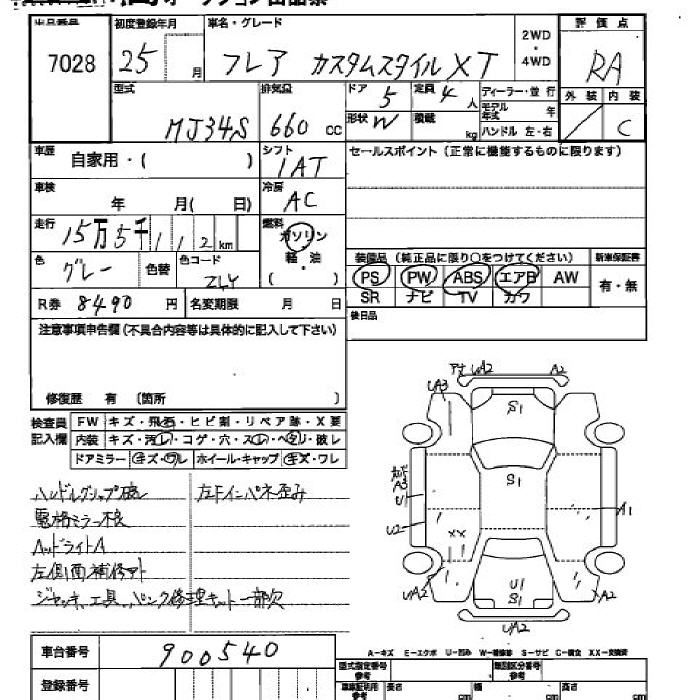 出品番号 初度登録年月 車名・グレード 2WD・4WD 評価点
7028 25 月 フレア カスタムスタイル XT RA
型式 排気量 ドア 定員 ディーラー・並行 外装 内装
MJ34S 660 cc 5 4 人 モデル年式 年
形状 W 積載 kg ハンドル 左・右 C
車歴 シフト セールスポイント (正常に機能するものに限ります)
自家用・( ) IAT
車検 冷房
年 月( 日) AC
走行 燃料
15万5千112km ガソリン
色 色替 色コード 軽・油
グレー ZLY ( )
装備品 (純正品に限り○をつけてください) 新車保証書
PS PW ABS エアB AW 有・無
SR ナビ TV カワ
R券 8490 円 名変期限 月 日
後日品
注意事項申告欄(不具合内容等は具体的に記入して下さい)
修復歴 有 〔箇所 〕
検査員記入欄 FW キズ・飛石・ヒビ割・リペア跡・X要
内装 キズ・汚レ・コゲ・穴・スレ・ヘタリ・破レ
ドアミラー キズ・ワレ ホイール・キャップ キズ・ワレ
ハンドルグリップ破レ 左Fインパネ歪み
電格ミラー不良
ヘッドライトA
左側面補修アト
ジャッキ、工具、パンク修理キット一部欠
UA2 A2
UA3 S1
A3 S1
U1 A1
U2 XX
UA2 U1 UA2
S1
UA2
A-キズ E-エクボ U-凹み W-補修跡 S-サビ C-腐食 XX-交換済
車台番号 900540 型式指定番号 参考 類別区分番号 参考
登録番号 車庫証明用 参考 長さ cm 幅 cm 高さ cm